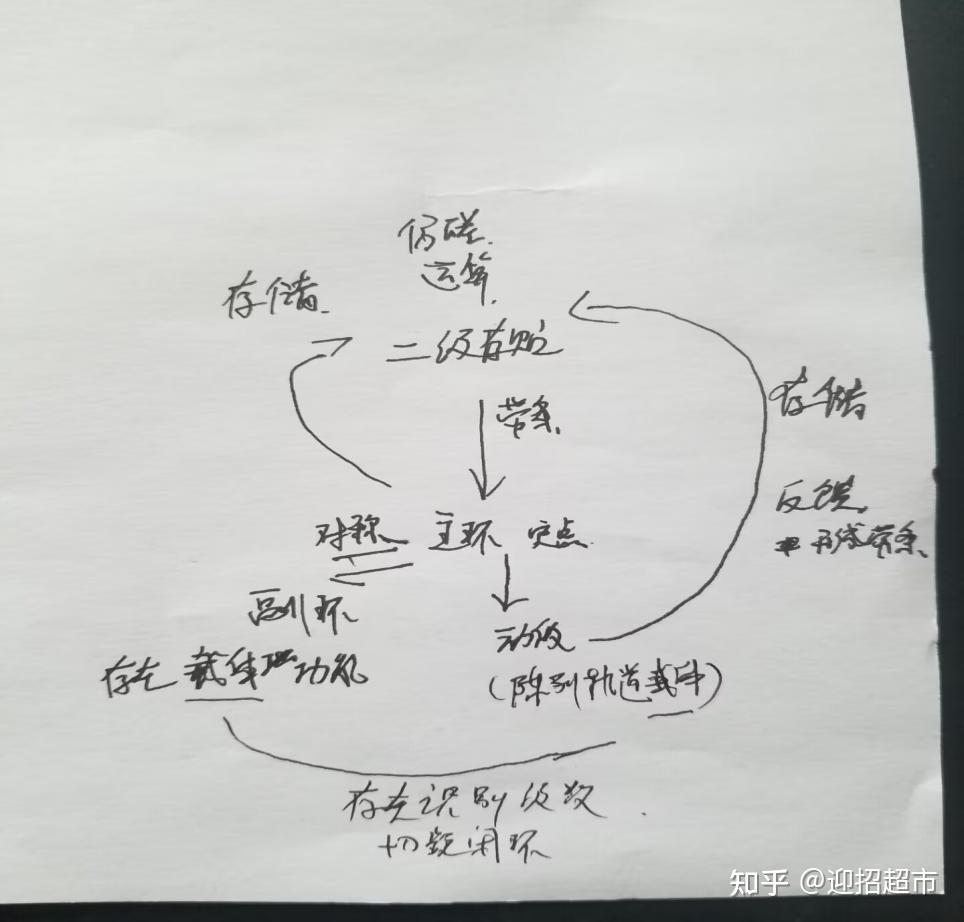 运算
存储
二级存贮
带条
存储
反馈
形成带条
对称 主环 定点
副环
动级
存在 功能
(陈列轨道载体)
存在识别级数
切 闭环
知乎 @迎招超市